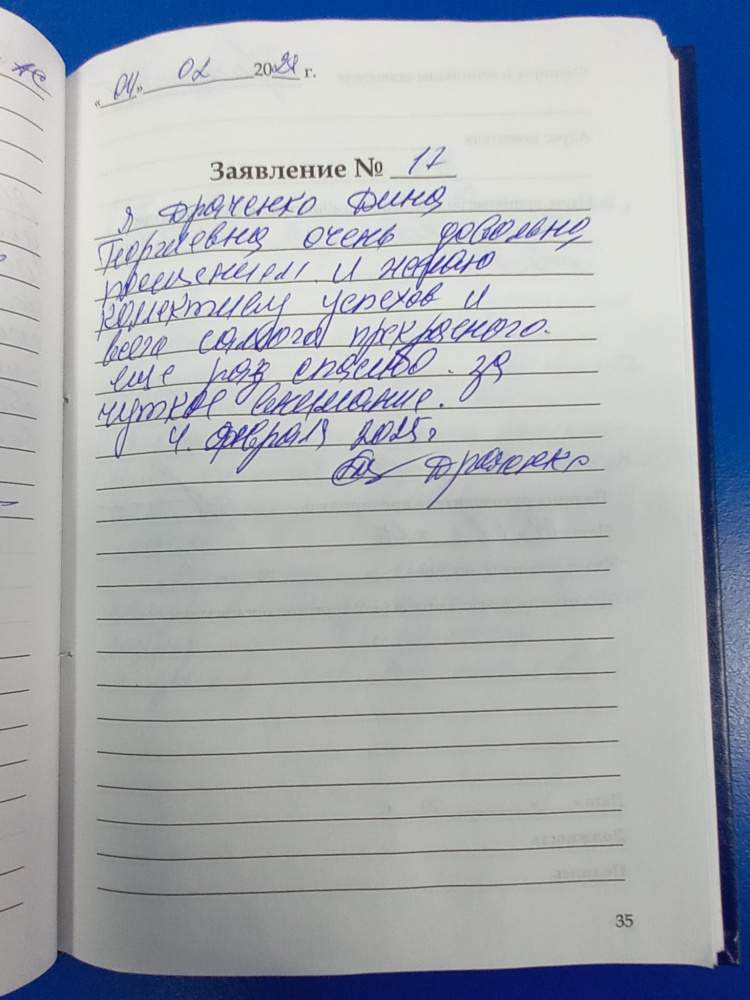 «04» 02 20 г.
Заявление № 17
Я Драченко Дина
Георгиевна очень довольна
посещением и желаю
колективу успехов и
всего самого прекрасного.
еще раз спасибо за
чуткое внимание.
4. февраля 2025г
Драченко
35